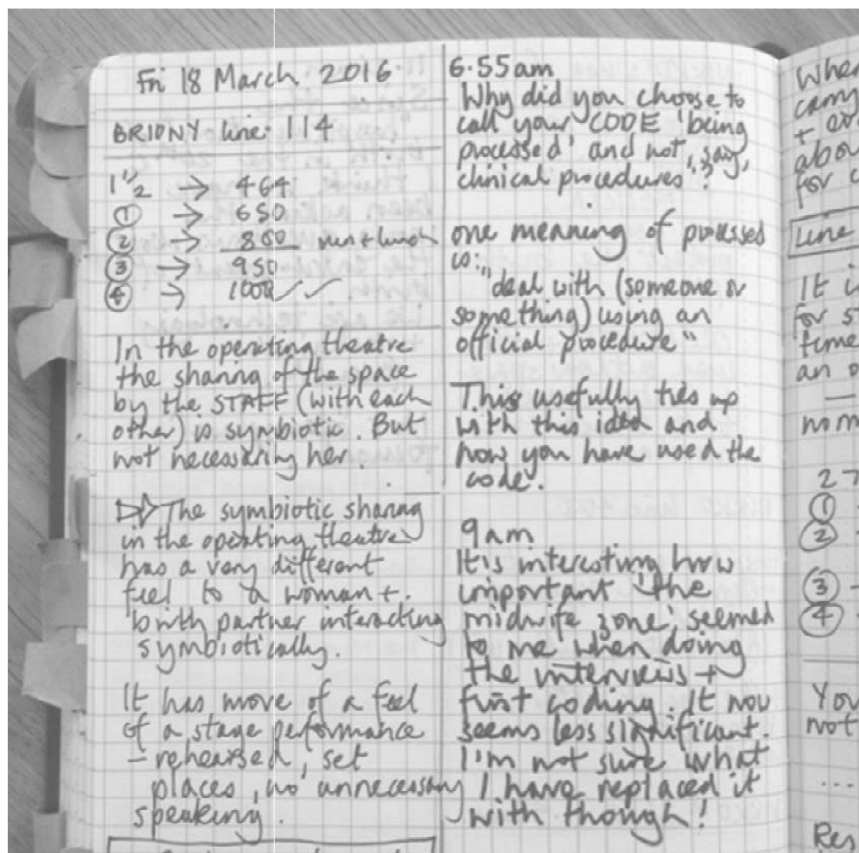 Fri 18 March 2016
BRIONY line: 114
→ 464
① → 650
② → 800 run + lunch
③ → 950
④ → 1000 ✓ ✓
In the operating theatre
the sharing of the space
by the STAFF (with each
other) is symbiotic. But
not necessarily her.
The symbiotic sharing
in the operating theatre
has a very different
feel to a woman +
birth partner interacting
symbiotically.
It has more of a feel
of a stage performance
– rehearsed, set
places, no unnecessary
speaking.
6.55am
Why did you choose to
call your CODE 'being
processed' and not, say,
'clinical procedures'?
one meaning of processed
is:
"deal with (someone or
something) using an
official procedure"
This usefully ties up
with this idea and
how you have used the
code.
9am
It is interesting how
important 'the
midwife zone' seemed
to me when doing
the interviews +
first coding. It now
seems less significant.
I'm not sure what
I have replaced it
with though!
When
carry
+
abou
for
Line
It i
for s
time
an o
—
nom
27
①
②
③
④
You
not
...
Res